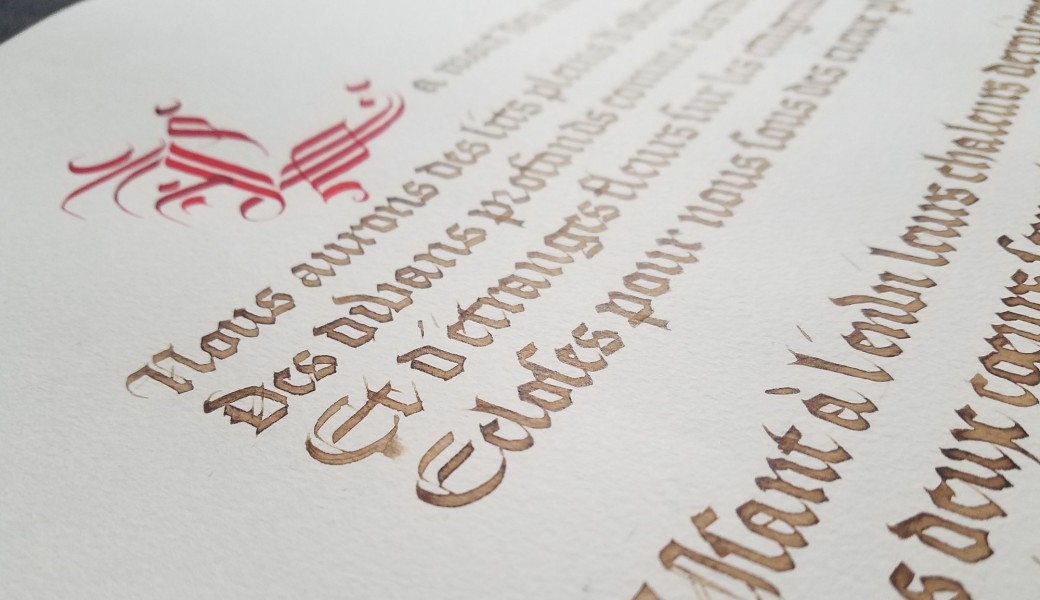 a mort des
Nous aurons des lits pleins d'odeurs
Des divans profonds comme des
Et d'étranges fleurs sur les étagères
Ecloses pour nous sous des cieux
Usant à l'envi leurs chaleurs derniè
s deux cœurs